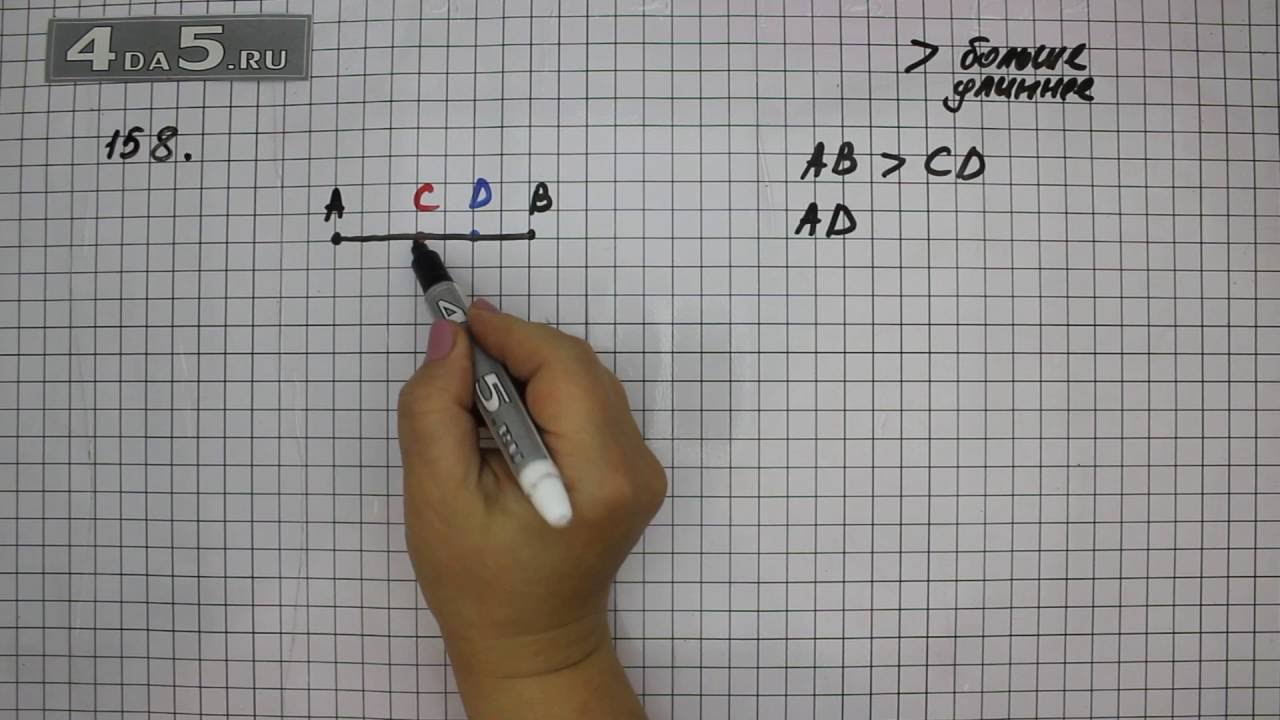 4DA5.RU
> больше
длиннее
158.
AB > CD
A C D B
AD
4
5